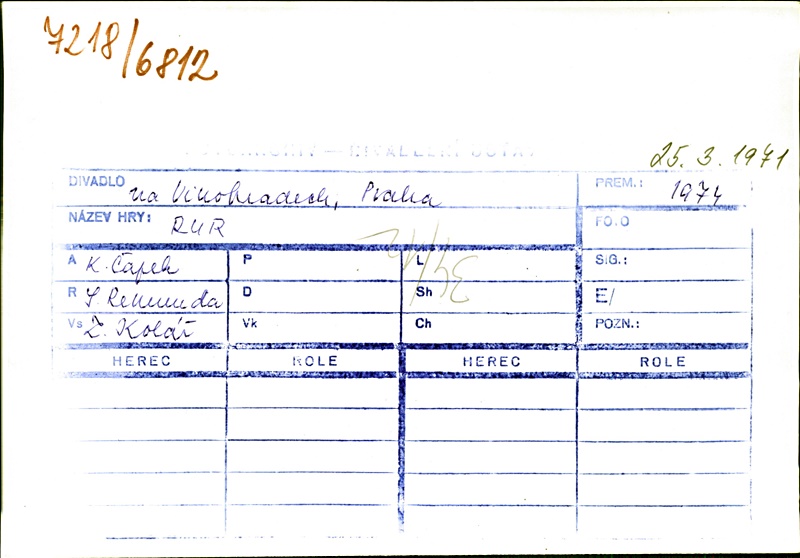 7218/6812
25. 3. 1971
DIVADLO na Vinohradech, Praha PREM.: 1974
NÁZEV HRY: RUR FOTO
A K. Čapek P L SIG.:
R J. Remunda D Sh E/
Vs Z. Kolář Vk Ch POZN.:
HEREC ROLE HEREC ROLE